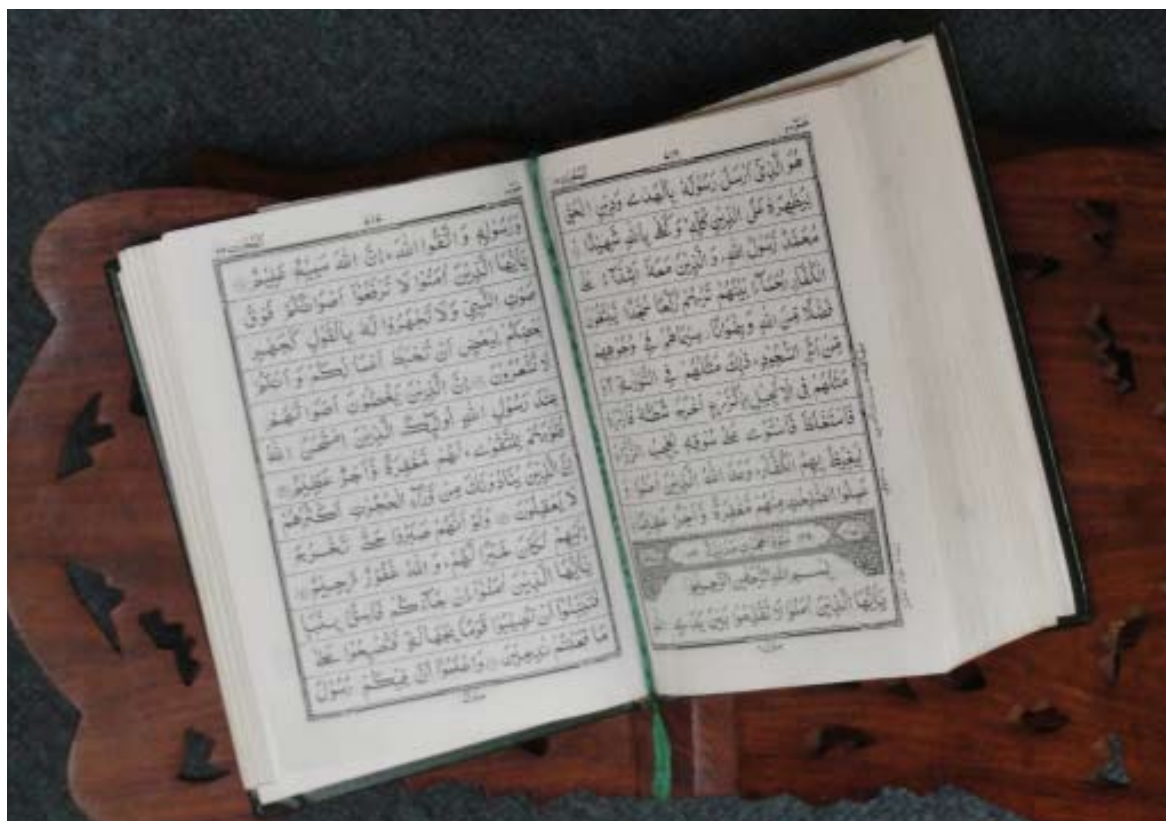 هُوَ الَّذِيْٓ اَرْسَلَ رَسُوْلَهٗ بِالْهُدٰى وَدِيْنِ الْحَقِّ
لِيُظْهِرَهٗ عَلَى الدِّيْنِ كُلِّهٖ وَكَفٰى بِاللّٰهِ شَهِيْدًا
مُحَمَّدٌ رَّسُوْلُ اللّٰهِ وَالَّذِيْنَ مَعَهٗٓ اَشِدَّآءُ عَلَى
الْكُفَّارِ رُحَمَآءُ بَيْنَهُمْ تَرٰىهُمْ رُكَّعًا سُجَّدًا يَّبْتَغُوْنَ
فَضْلًا مِّنَ اللّٰهِ وَرِضْوَانًا سِيْمَاهُمْ فِيْ وُجُوْهِهِمْ
مِّنْ اَثَرِ السُّجُوْدِ ذٰلِكَ مَثَلُهُمْ فِي التَّوْرٰىةِ وَ
مَثَلُهُمْ فِي الْاِنْجِيْلِ كَزَرْعٍ اَخْرَجَ شَطْئَهٗ فَاٰزَرَهٗ
فَاسْتَغْلَظَ فَاسْتَوٰى عَلٰى سُوْقِهٖ يُعْجِبُ الزُّرَّاعَ
لِيَغِيْظَ بِهِمُ الْكُفَّارَ وَعَدَ اللّٰهُ الَّذِيْنَ اٰمَنُوْا وَ
عَمِلُوا الصّٰلِحٰتِ مِنْهُمْ مَّغْفِرَةً وَّاَجْرًا عَظِيْمًا
بِسْمِ اللّٰهِ الرَّحْمٰنِ الرَّحِيْمِ
يٰٓاَيُّهَا الَّذِيْنَ اٰمَنُوْا لَا تُقَدِّمُوْا بَيْنَ يَدَيِ اللّٰهِ
وَرَسُوْلِهٖ وَاتَّقُوا اللّٰهَ اِنَّ اللّٰهَ سَمِيْعٌ عَلِيْمٌ
يٰٓاَيُّهَا الَّذِيْنَ اٰمَنُوْا لَا تَرْفَعُوْٓا اَصْوَاتَكُمْ فَوْقَ
صَوْتِ النَّبِيِّ وَلَا تَجْهَرُوْا لَهٗ بِالْقَوْلِ كَجَهْرِ
بَعْضِكُمْ لِبَعْضٍ اَنْ تَحْبَطَ اَعْمَالُكُمْ وَاَنْتُمْ
لَا تَشْعُرُوْنَ اِنَّ الَّذِيْنَ يَغُضُّوْنَ اَصْوَاتَهُمْ
عِنْدَ رَسُوْلِ اللّٰهِ اُولٰٓئِكَ الَّذِيْنَ امْتَحَنَ اللّٰهُ
قُلُوْبَهُمْ لِلتَّقْوٰى لَهُمْ مَّغْفِرَةٌ وَّاَجْرٌ عَظِيْمٌ
اِنَّ الَّذِيْنَ يُنَادُوْنَكَ مِنْ وَّرَآءِ الْحُجُرٰتِ اَكْثَرُهُمْ
لَا يَعْقِلُوْنَ وَلَوْ اَنَّهُمْ صَبَرُوْا حَتّٰى تَخْرُجَ
اِلَيْهِمْ لَكَانَ خَيْرًا لَّهُمْ وَاللّٰهُ غَفُوْرٌ رَّحِيْمٌ
يٰٓاَيُّهَا الَّذِيْنَ اٰمَنُوْٓا اِنْ جَآءَكُمْ فَاسِقٌۢ بِنَبَاٍ
فَتَبَيَّنُوْٓا اَنْ تُصِيْبُوْا قَوْمًۢا بِجَهَالَةٍ فَتُصْبِحُوْا عَلٰى
مَا فَعَلْتُمْ نٰدِمِيْنَ وَاعْلَمُوْٓا اَنَّ فِيْكُمْ رَسُوْلَ